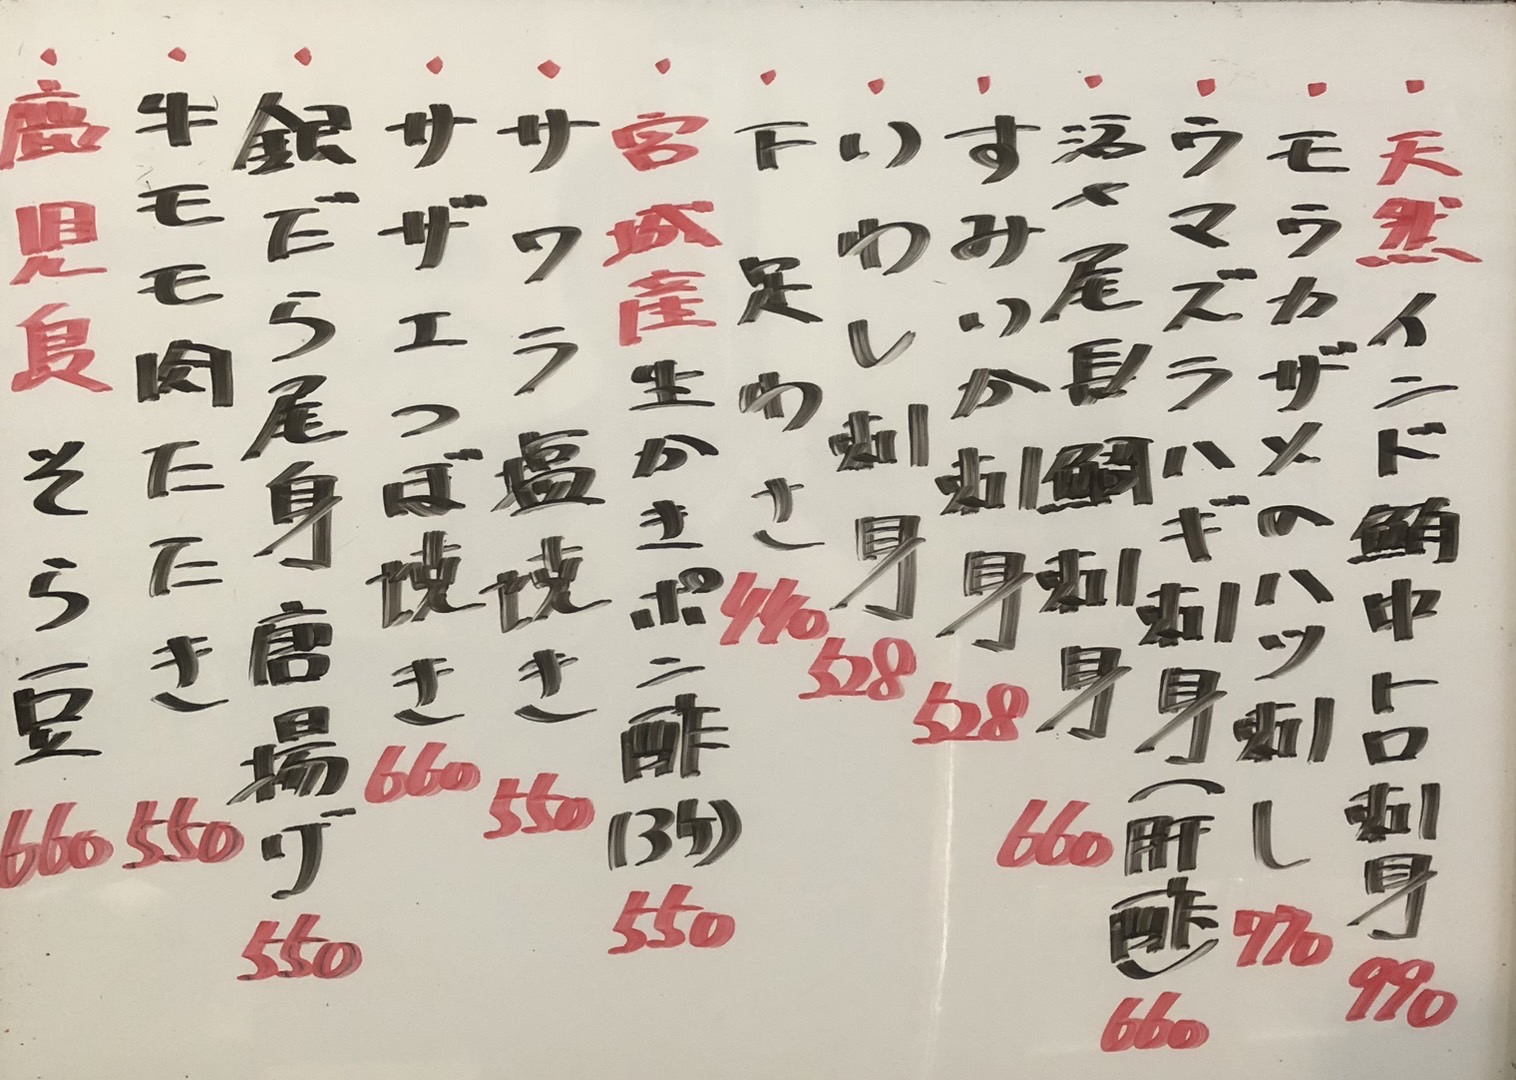 ・天然インド鮪中トロ刺身 990
・モウカザメのハツ刺し 770
・ウマズラハギ刺身(肝酢) 660
・活〆尾長鯛刺身 660
・すみいか刺身 528
・いわし刺身 528
・下足わさ 440
・宮城産生かきポン酢(3ケ) 550
・サワラ塩焼き 550
・サザエつぼ焼き 660
・銀だら尾身唐揚げ 550
・牛モモ肉たたき 550
・鹿児島そら豆 660